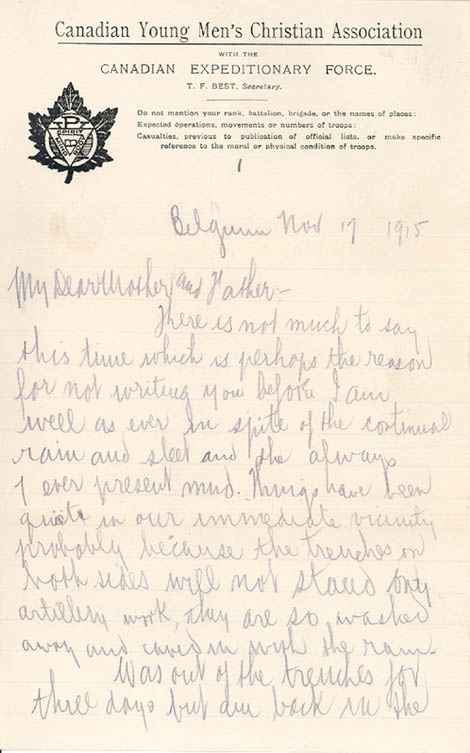 Canadian Young Men's Christian Association
WITH THE
CANADIAN EXPEDITIONARY FORCE.
T. F. BEST, Secretary.
Do not mention your rank, battalion, brigade, or the names of places:
Expected operations, movements or numbers of troops:
Casualties, previous to publication of official lists, or make specific
reference to the moral or physical condition of troops.
SPIRIT
1
Belgium Nov 17 1915
My Dear Mother and Father:-
There is not much to say
this time which is perhaps the reason
for not writing you before I am
well as ever in spite of the continual
rain and sleet and the always
& ever present mud. Things have been
quiet in our immediate vicinity
probably because the trenches on
both sides will not stand any
artillery work, they are so washed
away and caved in with the rain-
Was out of the trenches for
three days but am back in the